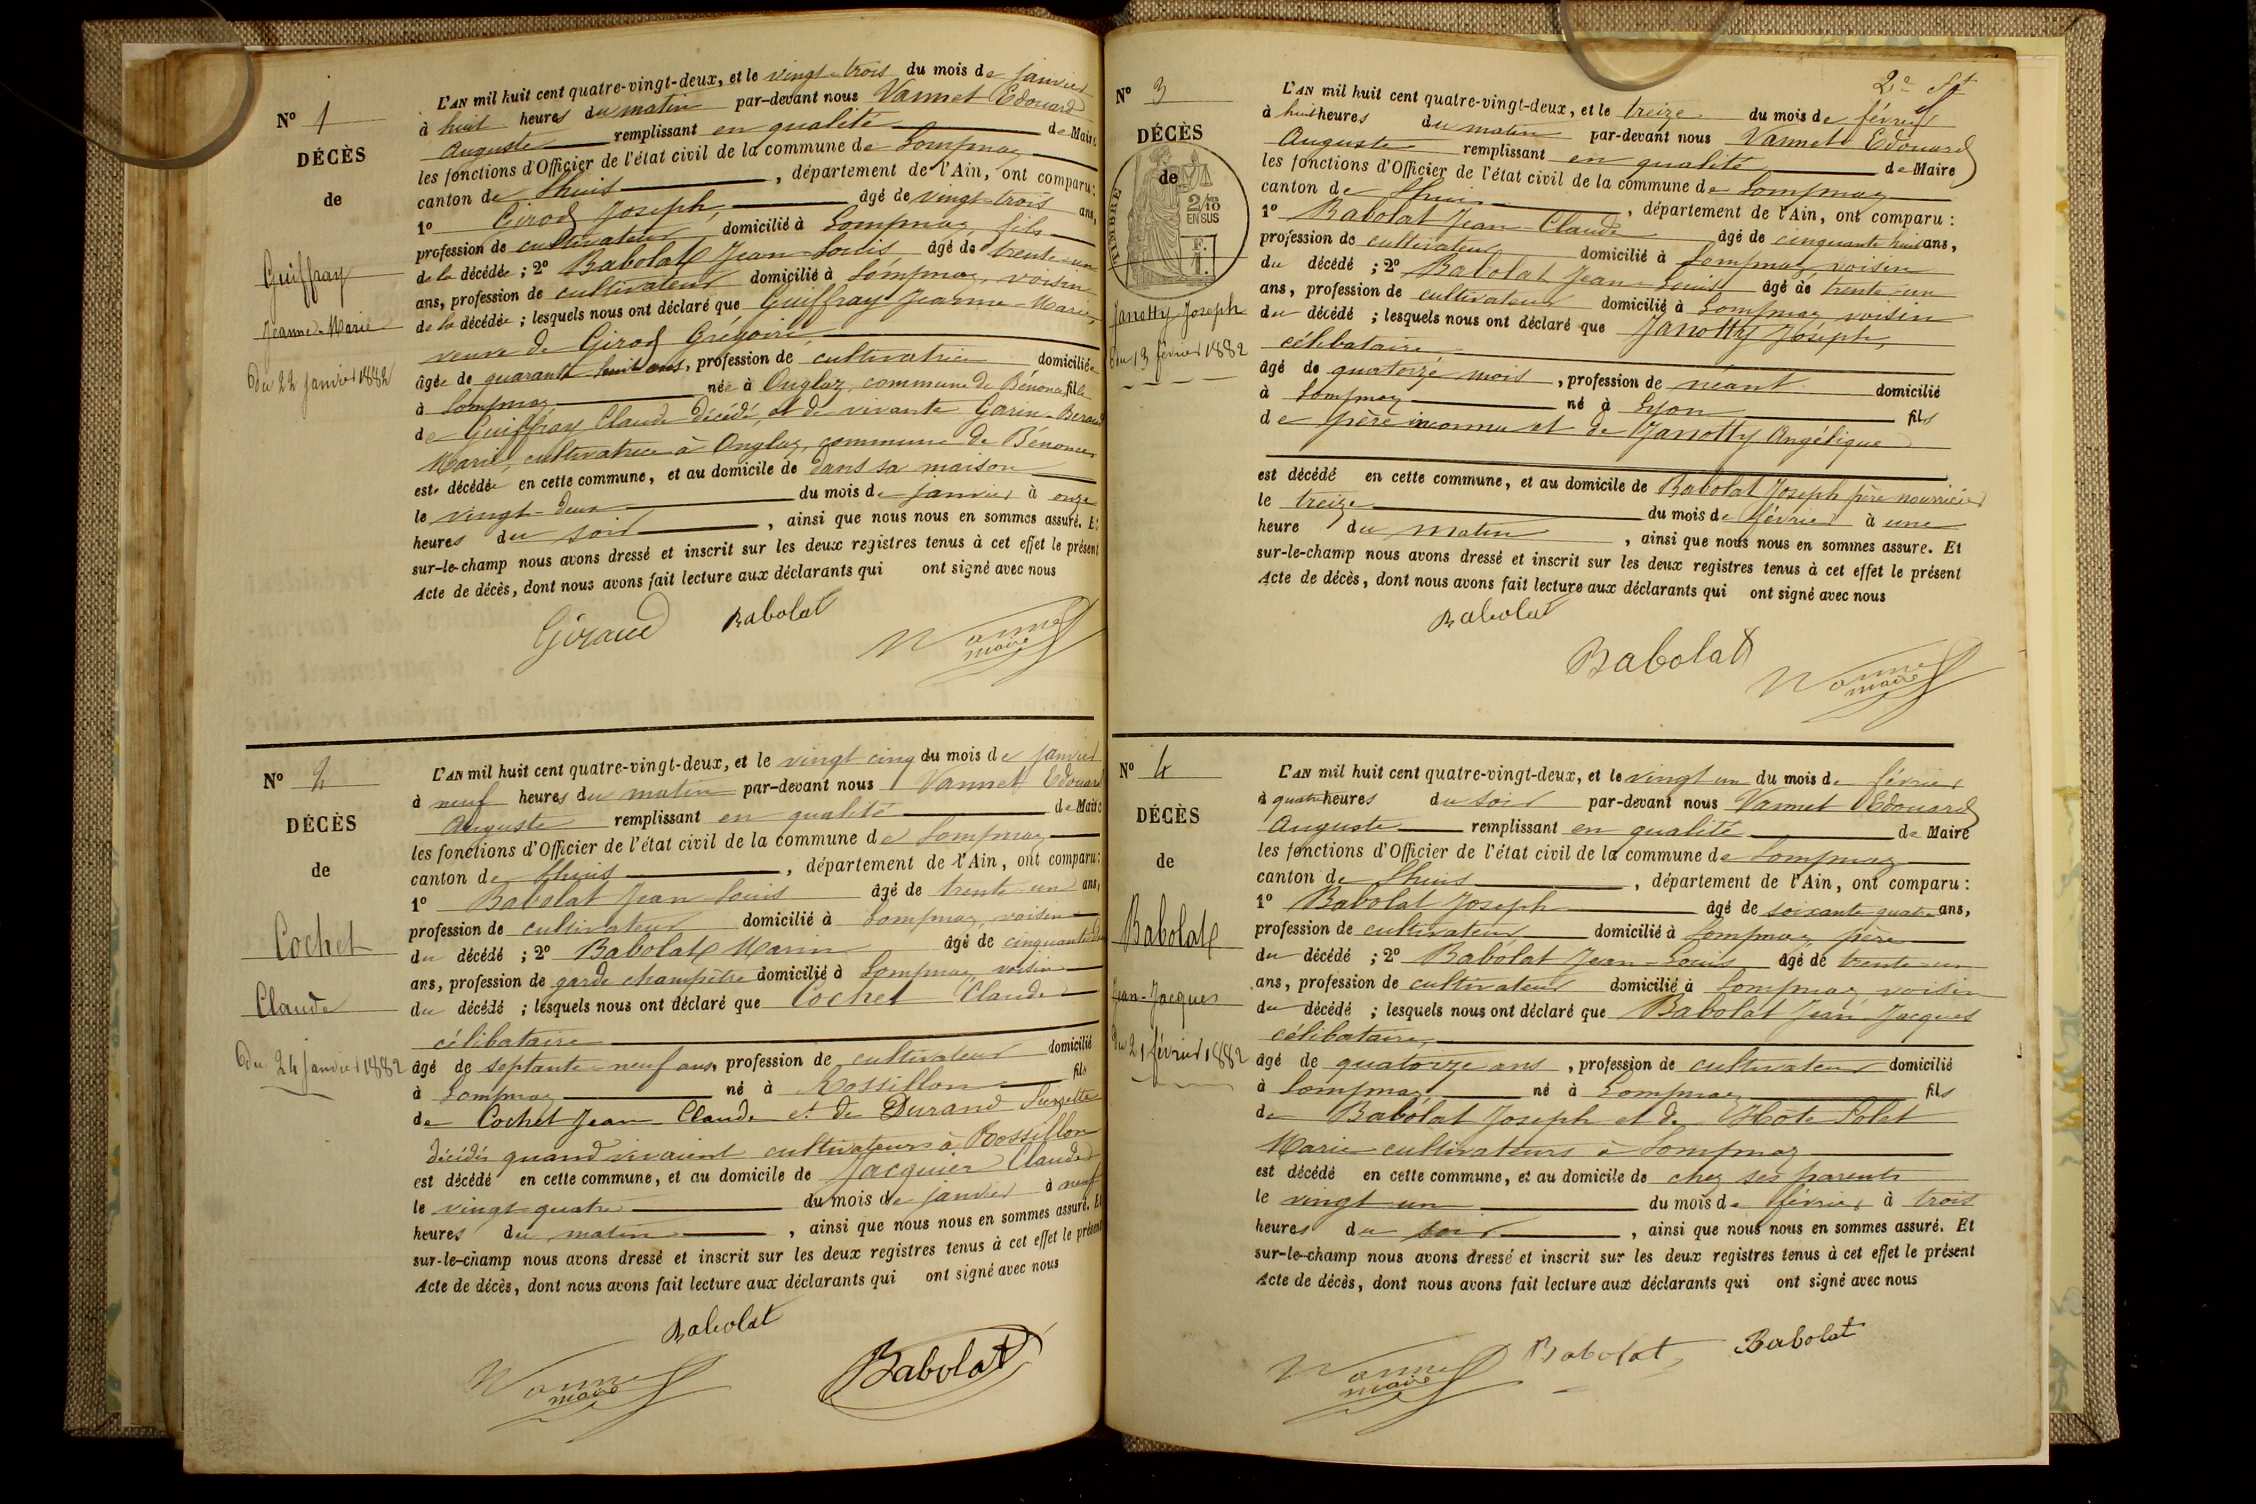 N° 1
DÉCÈS
de
Guiffray
Jeanne-Marie
du 22 janvier 1882
L'AN mil huit cent quatre-vingt-deux, et le vingt-trois du mois de janvier
à huit heures du matin par-devant nous Vannet Edouard
Auguste remplissant en qualité de Maire
les fonctions d'Officier de l'état civil de la commune de Lompnaz
canton de Lhuis, département de l'Ain, ont comparu:
1° Girod Joseph, âgé de vingt-trois ans,
profession de cultivateur domicilié à Lompnaz, fils
de la décédée; 2° Babolat Jean-Louis âgé de trente-un
ans, profession de cultivateur domicilié à Lompnaz, voisin
de la décédée; lesquels nous ont déclaré que Guiffray Jeanne-Marie,
veuve de Girod Grégoire
âgée de quarante huit ans, profession de cultivatrice domiciliée
à Lompnaz née à Onglaz, commune de Bénonces, fille
de Guiffray Claude décédé, et de vivante Garin-Beraud
Marie, cultivatrice à Onglaz, commune de Bénonces
est décédée en cette commune, et au domicile de dans sa maison
le vingt-deux du mois de janvier à onze
heures du soir, ainsi que nous nous en sommes assuré. Et
sur-le-champ nous avons dressé et inscrit sur les deux registres tenus à cet effet le présent
Acte de décès, dont nous avons fait lecture aux déclarants qui ont signé avec nous
Giraud Babolat Vannet
maire
N° 2
DÉCÈS
de
Cochet
Claude
du 24 janvier 1882
L'AN mil huit cent quatre-vingt-deux, et le vingt cinq du mois de janvier
à neuf heures du matin par-devant nous Vannet Edouard
Auguste remplissant en qualité de Maire
les fonctions d'Officier de l'état civil de la commune de Lompnaz
canton de Lhuis, département de l'Ain, ont comparu:
1° Babolat Jean Louis âgé de trente-un ans,
profession de cultivateur domicilié à Lompnaz, voisin
du décédé; 2° Babolat Marin âgé de
ans, profession de garde champêtre domicilié à Lompnaz, voisin
du décédé; lesquels nous ont déclaré que Cochet Claude
célibataire
âgé de septante-neuf ans, profession de cultivateur domicilié
à Lompnaz né à Rossillon fils
de Cochet Jean Claude et de Durand Suzette
décédés quand vivaient cultivateurs à Rossillon
est décédé en cette commune, et au domicile de Jacquier Claude
le vingt-quatre du mois de janvier à neuf
heures du matin, ainsi que nous nous en sommes assuré. Et
sur-le-champ nous avons dressé et inscrit sur les deux registres tenus à cet effet le présent
Acte de décès, dont nous avons fait lecture aux déclarants qui ont signé avec nous
Babolat
Vannet Babolat
maire
2e
N° 3
DÉCÈS
de
TIMBRE
2/10
EN SUS
Janotty Joseph
du 13 février 1882
L'AN mil huit cent quatre-vingt-deux, et le treize du mois de février
à huit heures du matin par-devant nous Vannet Edouard
Auguste remplissant en qualité de Maire
les fonctions d'Officier de l'état civil de la commune de Lompnaz
canton de Lhuis, département de l'Ain, ont comparu:
1° Babolat Jean-Claude âgé de cinquante huit ans,
profession de cultivateur domicilié à Lompnaz, voisin
du décédé; 2° Babolat Jean-Louis âgé de trente-un
ans, profession de cultivateur domicilié à Lompnaz voisin
du décédé; lesquels nous ont déclaré que Janotty Joseph,
célibataire,
âgé de quatorze mois, profession de néant domicilié
à Lompnaz né à Lyon fils
de père inconnu et de Janotty Angélique
est décédé en cette commune, et au domicile de Babolat Joseph père nourricier
le treize du mois de février à une
heure du matin, ainsi que nous nous en sommes assuré. Et
sur-le-champ nous avons dressé et inscrit sur les deux registres tenus à cet effet le présent
Acte de décès, dont nous avons fait lecture aux déclarants qui ont signé avec nous
Babolat
Babolat Vannet
maire
N° 4
DÉCÈS
de
Babolat
Jean-Jacques
du 21 février 1882
L'AN mil huit cent quatre-vingt-deux, et le vingt un du mois de février
à quatre heures du soir par-devant nous Vannet Edouard
Auguste remplissant en qualité de Maire
les fonctions d'Officier de l'état civil de la commune de Lompnaz
canton de Lhuis, département de l'Ain, ont comparu:
1° Babolat Joseph âgé de soixante quatre ans,
profession de cultivateur domicilié à Lompnaz, père
du décédé; 2° Babolat Jean-Louis âgé de trente-un
ans, profession de cultivateur domicilié à Lompnaz voisin
du décédé; lesquels nous ont déclaré que Babolat Jean-Jacques
célibataire,
âgé de quatorze ans, profession de cultivateur domicilié
à Lompnaz né à Lompnaz fils
de Babolat Joseph et de
Marie cultivateurs à Lompnaz
est décédé en cette commune, et au domicile de chez ses parents
le vingt un du mois de février à trois
heures du soir, ainsi que nous nous en sommes assuré. Et
sur-le-champ nous avons dressé et inscrit sur les deux registres tenus à cet effet le présent
Acte de décès, dont nous avons fait lecture aux déclarants qui ont signé avec nous
Vannet Babolat Babolat
maire